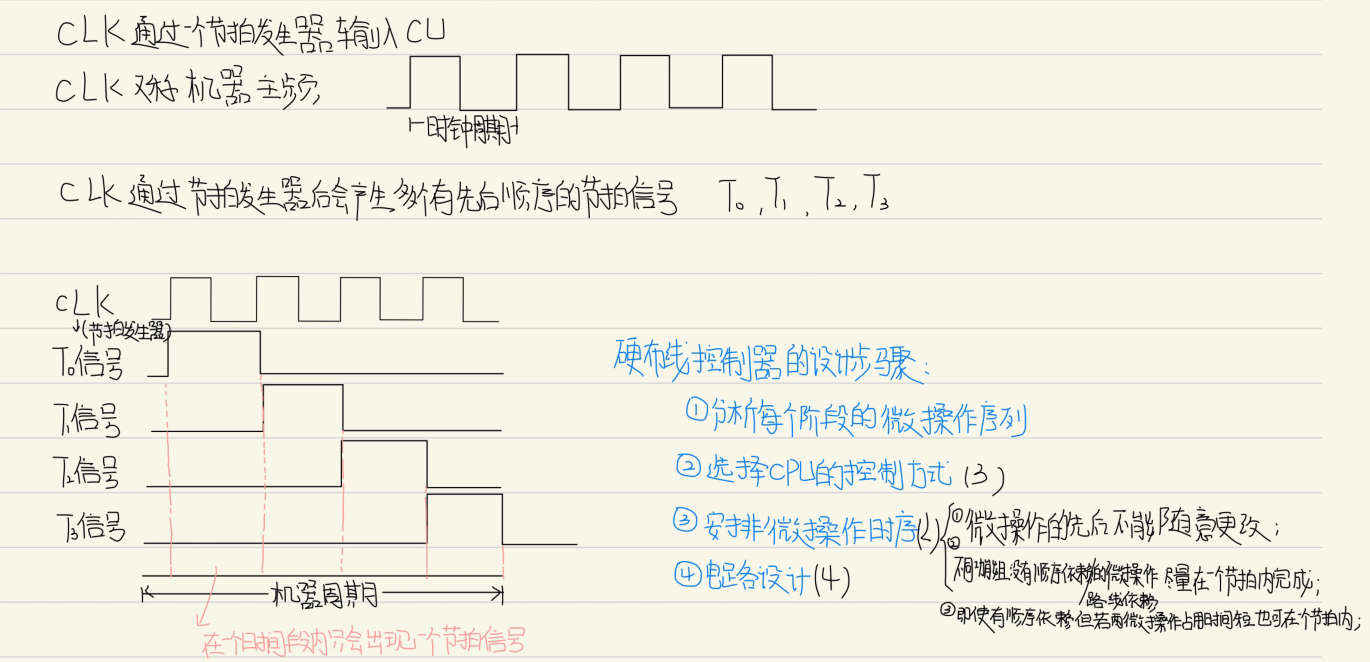 CLK通过一个节拍发生器输入CU
CLK又称机器主频
时钟周期
CLK通过节拍发生器后会产生多个有先后顺序的节拍信号 T₀,T₁,T₂,T₃
CLK
↓(节拍发生器)
T₀信号
T₁信号
T₂信号
T₃信号
机器周期
在一个时间段内只会出现一个节拍信号
硬布线控制器的设计步骤:
①分析每个阶段的微操作序列
②选择CPU的控制方式(3)
③安排微操作时序(2)
①微操作的先后不能随意更改;
②不同 没有顺序依赖的微操作尽量在一个节拍内完成;
路线依赖
③即使有顺序依赖但若两微操作占用时间短也可在一个节拍内;
④电路设计(4)